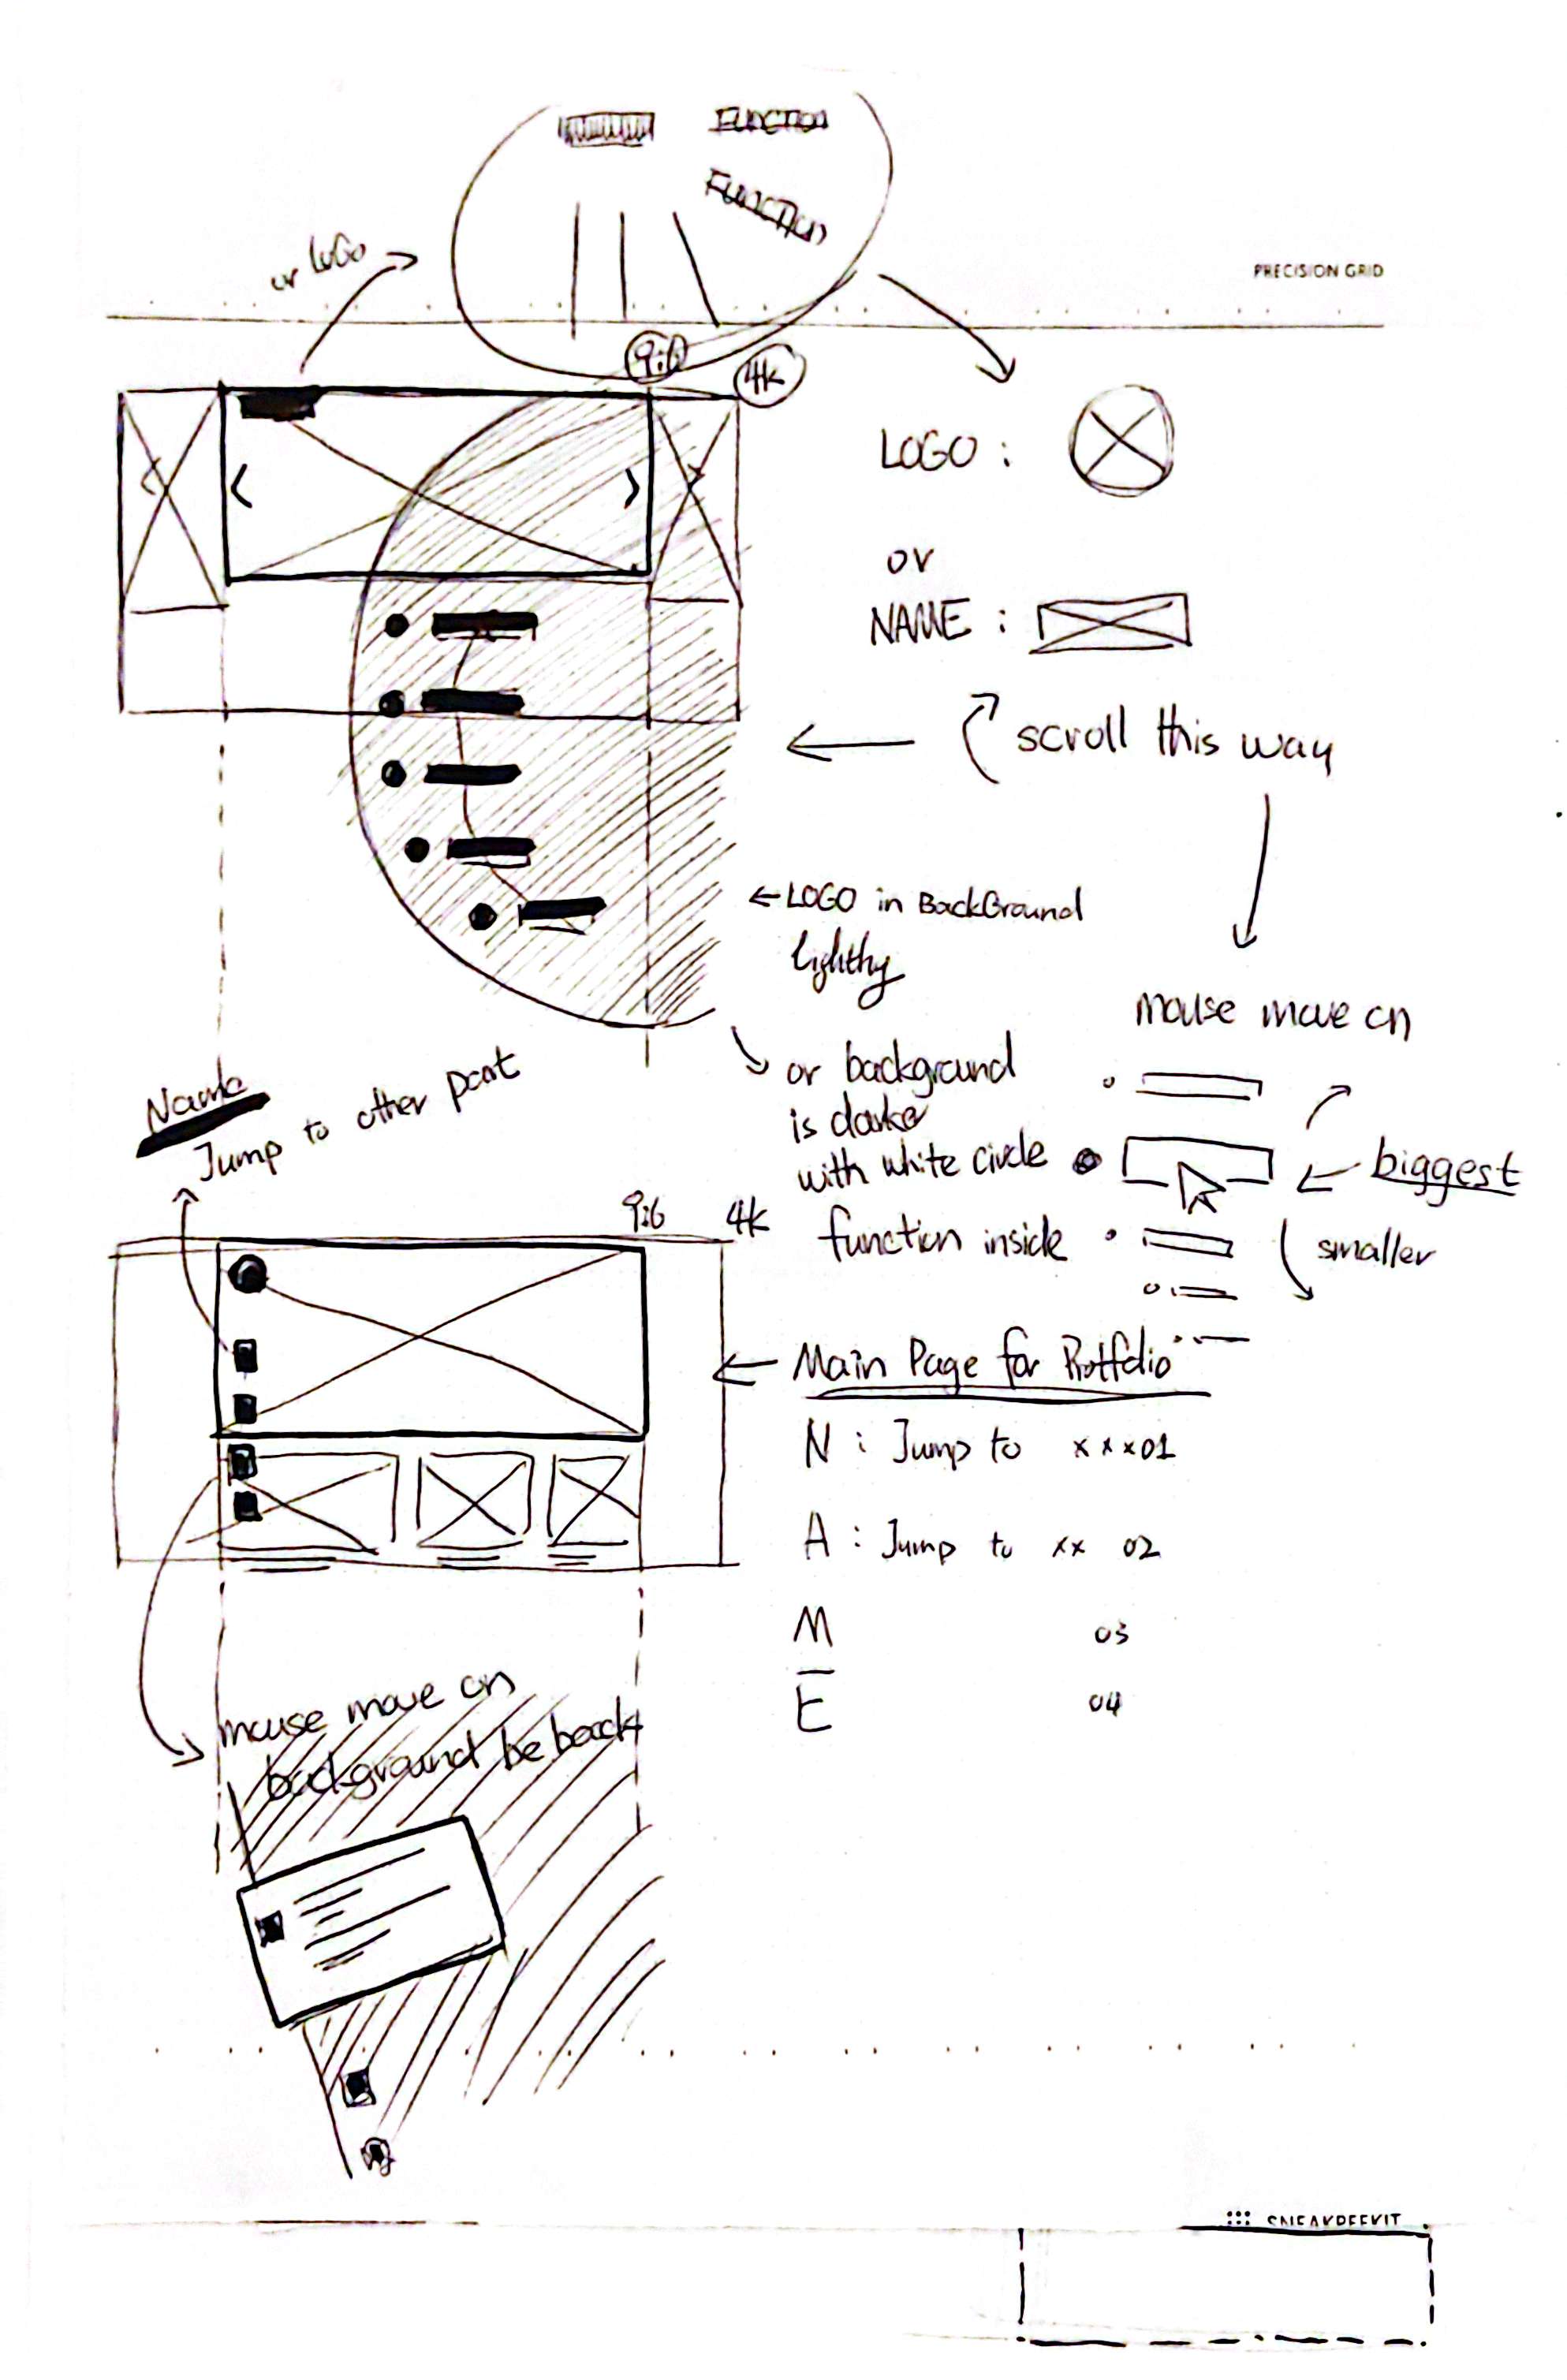 FUNCTION
FUNCTION
or LOGO
PRECISION GRID
9:6
4k
LOGO :
or
NAME :
scroll this way
← LOGO in BackGround
lighthy
mouse move on
or background
is darker
with white circle
function inside
biggest
smaller
Name
Jump to other part
9:6
4k
Main Page for Protfolio
N : Jump to xxx01
A : Jump to xx 02
M 03
E 04
mouse move on
background be back
SNEAKPEEKIT